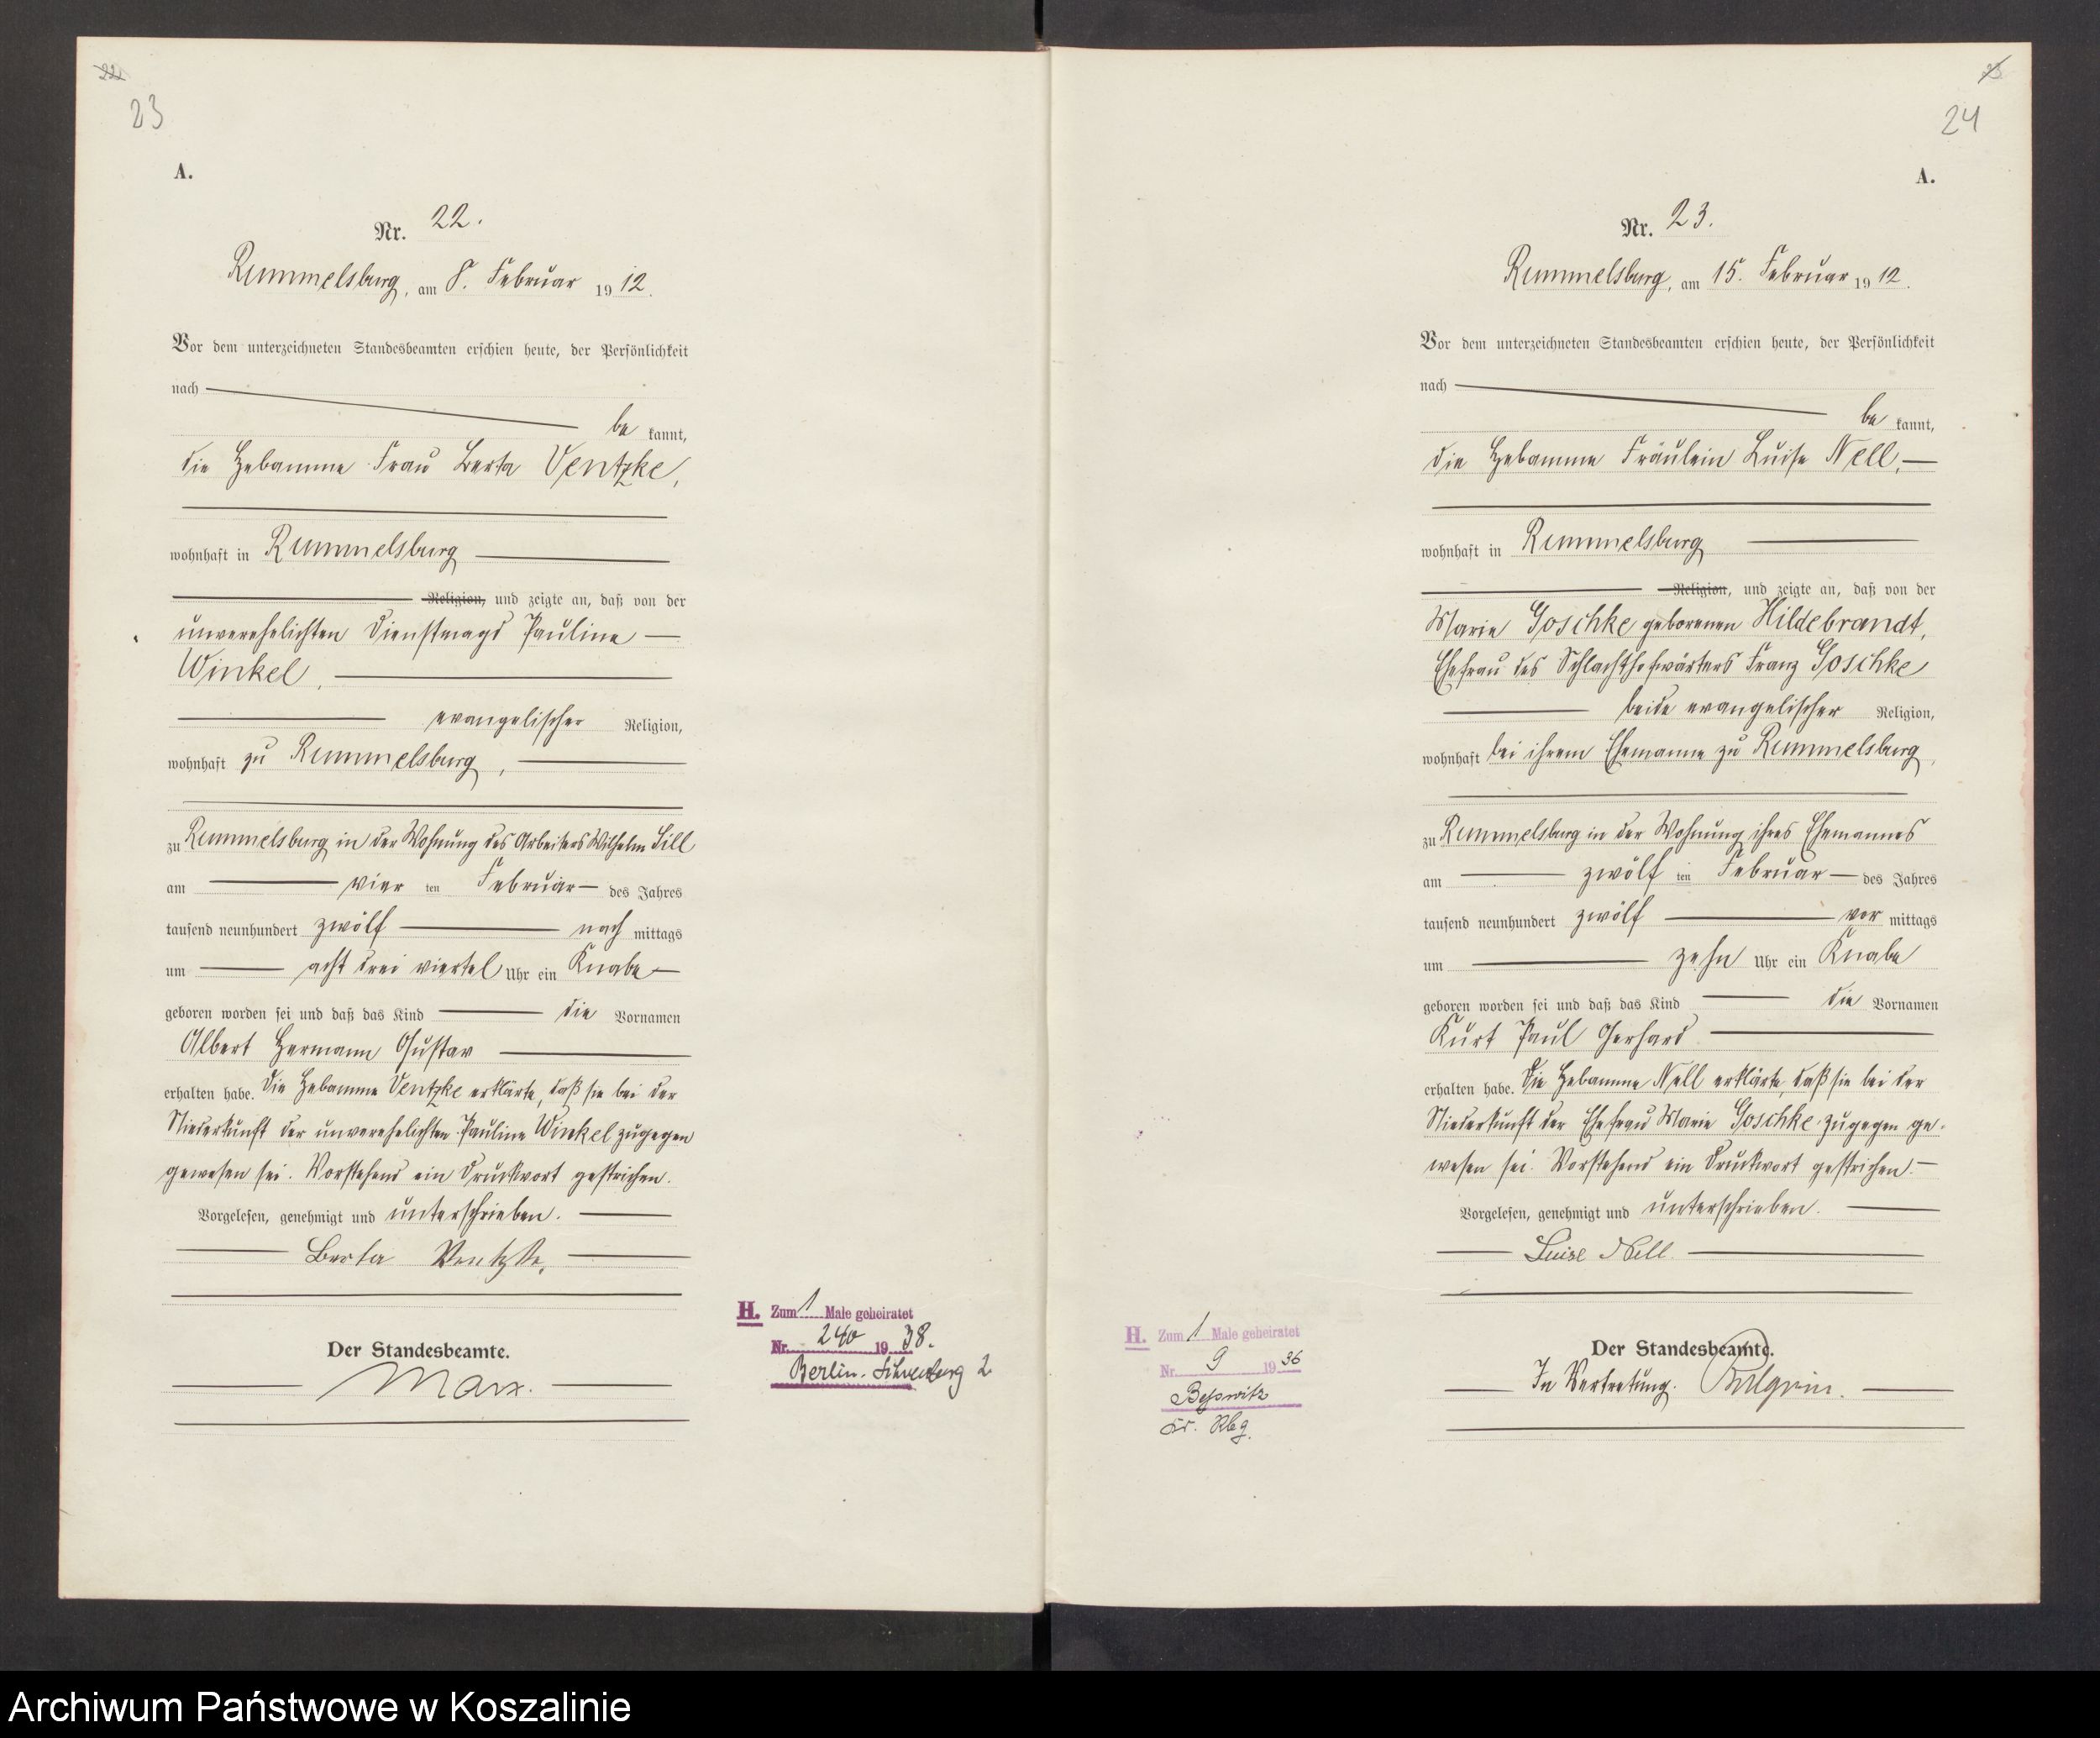 22
23
A.
Nr. 22.
Rummelsburg, am 8. Februar 1912.
Vor dem unterzeichneten Standesbeamten erschien heute, der Persönlichkeit
nach
be kannt,
die Hebamme Frau Berta Ventzke,
wohnhaft in Rummelsburg
Religion, und zeigte an, daß von der
unverehelichten Dienstmagd Pauline
Winkel,
evangelischer Religion,
wohnhaft zu Rummelsburg,
zu Rummelsburg in der Wohnung des Arbeiters Wilhelm Sill
am vier ten Februar des Jahres
tausend neunhundert zwölf nach mittags
um acht drei viertel Uhr ein Knabe
geboren worden sei und daß das Kind die Vornamen
Albert Hermann Gustav
erhalten habe. Die Hebamme Ventzke erklärte, daß sie bei der
Niederkunft der unverehelichten Pauline Winkel zugegen
gewesen sei. Vorstehend ein Druckwort gestrichen.
Vorgelesen, genehmigt und unterschrieben.
Berta Ventzke,
Der Standesbeamte.
Marx.
H. Zum 1 Male geheiratet
Nr. 240 1938.
Berlin-Schöneberg 2
23
24
A.
Nr. 23.
Rummelsburg, am 15. Februar 1912.
Vor dem unterzeichneten Standesbeamten erschien heute, der Persönlichkeit
nach
be kannt,
die Hebamme Fräulein Luise Nell,
wohnhaft in Rummelsburg
Religion, und zeigte an, daß von der
Marie Goschke geborenen Hildebrandt,
Ehefrau des Schlachthofwärters Franz Goschke
beide evangelischer Religion,
wohnhaft bei ihrem Ehemanne zu Rummelsburg,
zu Rummelsburg in der Wohnung ihres Ehemannes
am zwölf ten Februar des Jahres
tausend neunhundert zwölf vor mittags
um zehn Uhr ein Knabe
geboren worden sei und daß das Kind die Vornamen
Kurt Paul Gerhard
erhalten habe. Die Hebamme Nell erklärte, daß sie bei der
Niederkunft der Ehefrau Marie Goschke zugegen ge-
wesen sei. Vorstehend ein Druckwort gestrichen.
Vorgelesen, genehmigt und unterschrieben.
Luise Nell.
Der Standesbeamte.
In Vertretung.
H. Zum 1 Male geheiratet
Nr. 9 1936
Beßwitz
Kr. Rbg.
Archiwum Państwowe w Koszalinie